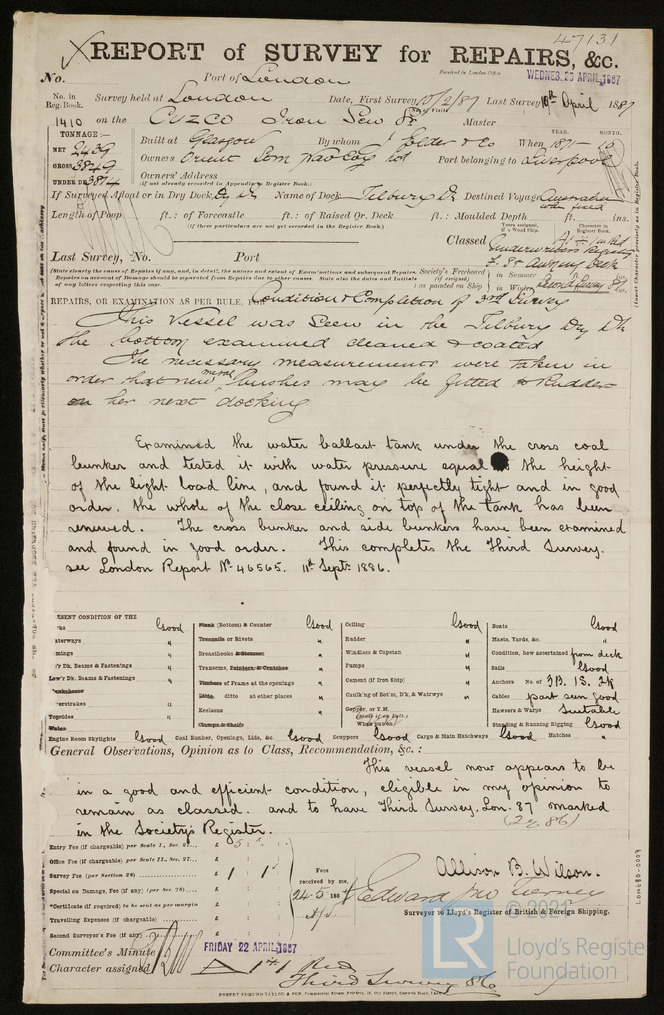 47131
REPORT of SURVEY for REPAIRS, &c.
No. Port of London Received in London Office WEDNES. 20 APRIL 1887
No. in Reg. Book. Survey held at London Date, First Survey 10/2/87 Last Survey 18th April 1887
1410 on the CUZCO Iron Scw Str Master
TONNAGE:—
NET 2439
GROSS 3849
UNDER DK 3814
Built at Glasgow By whom J Elder & Co When 1871 - 10 YEAR. MONTH.
Owners Orient Stm Nav Coy Ltd Port belonging to Liverpool
Owners' Address
(if not already recorded in Appendix to Register Book.)
If Surveyed Afloat or in Dry Dock Dry Dk Name of Dock Tilbury Dk Destined Voyage Australia
Length of Poop ft.: of Forecastle ft.: of Raised Qr. Deck ft.: Moulded Depth ft. ins.
(if these particulars are not yet recorded in the Register Book.)
Last Survey, No. Port
Classed
Underwriters Registry
(State clearly the cause of Repairs if any, and, in detail, the nature and extent of Examinations and subsequent Repairs.
Repairs on account of Damage should be separated from Repairs due to other causes. State also the dates and Initials
of any letters respecting this case.
Society's Freeboard (if assigned) as painted on Ship in Summer in Winter
REPAIRS, OR EXAMINATION AS PER RULE, FOR Condition & Completion of 3rd Survey
This Vessel was Seen in the Tilbury Dry Dk
the bottom examined cleaned & coated
The necessary measurements were taken in
order that new metal bushes may be fitted to Rudder
on her next docking
Examined the water ballast tank under the cross coal
bunker and tested it with water pressure equal the height
of the light load line, and found it perfectly tight and in good
order. the whole of the close ceiling on top of the tank has been
renewed. The cross bunker and side bunkers have been examined
and found in good order. This completes the Third Survey.
see London Report No 46565. 11th Septr 1886.
PRESENT CONDITION OF THE
Good Plank (Bottom) & Counter Good Ceiling Good Boats Good
Waterways " Treenails or Rivets " Rudder " Masts, Yards, &c. "
" Breasthooks & Stemson " Windlass & Capstan " Condition, how ascertained from deck
Up'r Dk. Beams & Fastenings " Transoms, Pointers, & Crutches " Pumps " Sails Good
Low'r Dk. Beams & Fastenings " Timbers of Frame at the openings " Cement (if Iron Ship) " Anchors No. of 3B. 1S. 2K
Ditto, ditto at other places " Caulking of Bot'm, D'k, & Watrwys " Cables part seen good
Keelsons " Copper, or Y.M. Hawsers & Warps Suitable
Topsides " Clamps & Shelfs When put on? Standing & Running Rigging Good
Wales
Engine Room Skylights Good Coal Bunker, Openings, Lids, &c. Good Scuppers Good Cargo & Main Hatchways Good Hatches "
General Observations, Opinion as to Class, Recommendation, &c.:
This vessel now appears to be
in a good and efficient condition, eligible in my opinion to
remain as classed. and to have Third Survey. Lon. 87 marked
in the Society's Register.
Entry Fee (if chargeable) per Scale I., Sec. 27... £
Office Fee (if chargeable) per Scale II., Sec. 27... £
Survey Fee (per Section 28) £ 1 1
Special on Damage, Fee (if any) (per Sec. 28) £
*Certificate (if required) to be sent as per margin
Travelling Expenses (if chargeable) £
Second Surveyor's Fee (if any) £
Fees received by me,
24.5.1887
Allison B. Wilson.
Edward Jno Tierney
Surveyor to Lloyd's Register of British & Foreign Shipping.
Committee's Minute FRIDAY 22 APRIL 1887
Character assigned
Third Survey 86
ROBERT EDMUND TAYLOR & SON,
LON680-0009
© 2021
LR
Lloyd's Register
Foundation